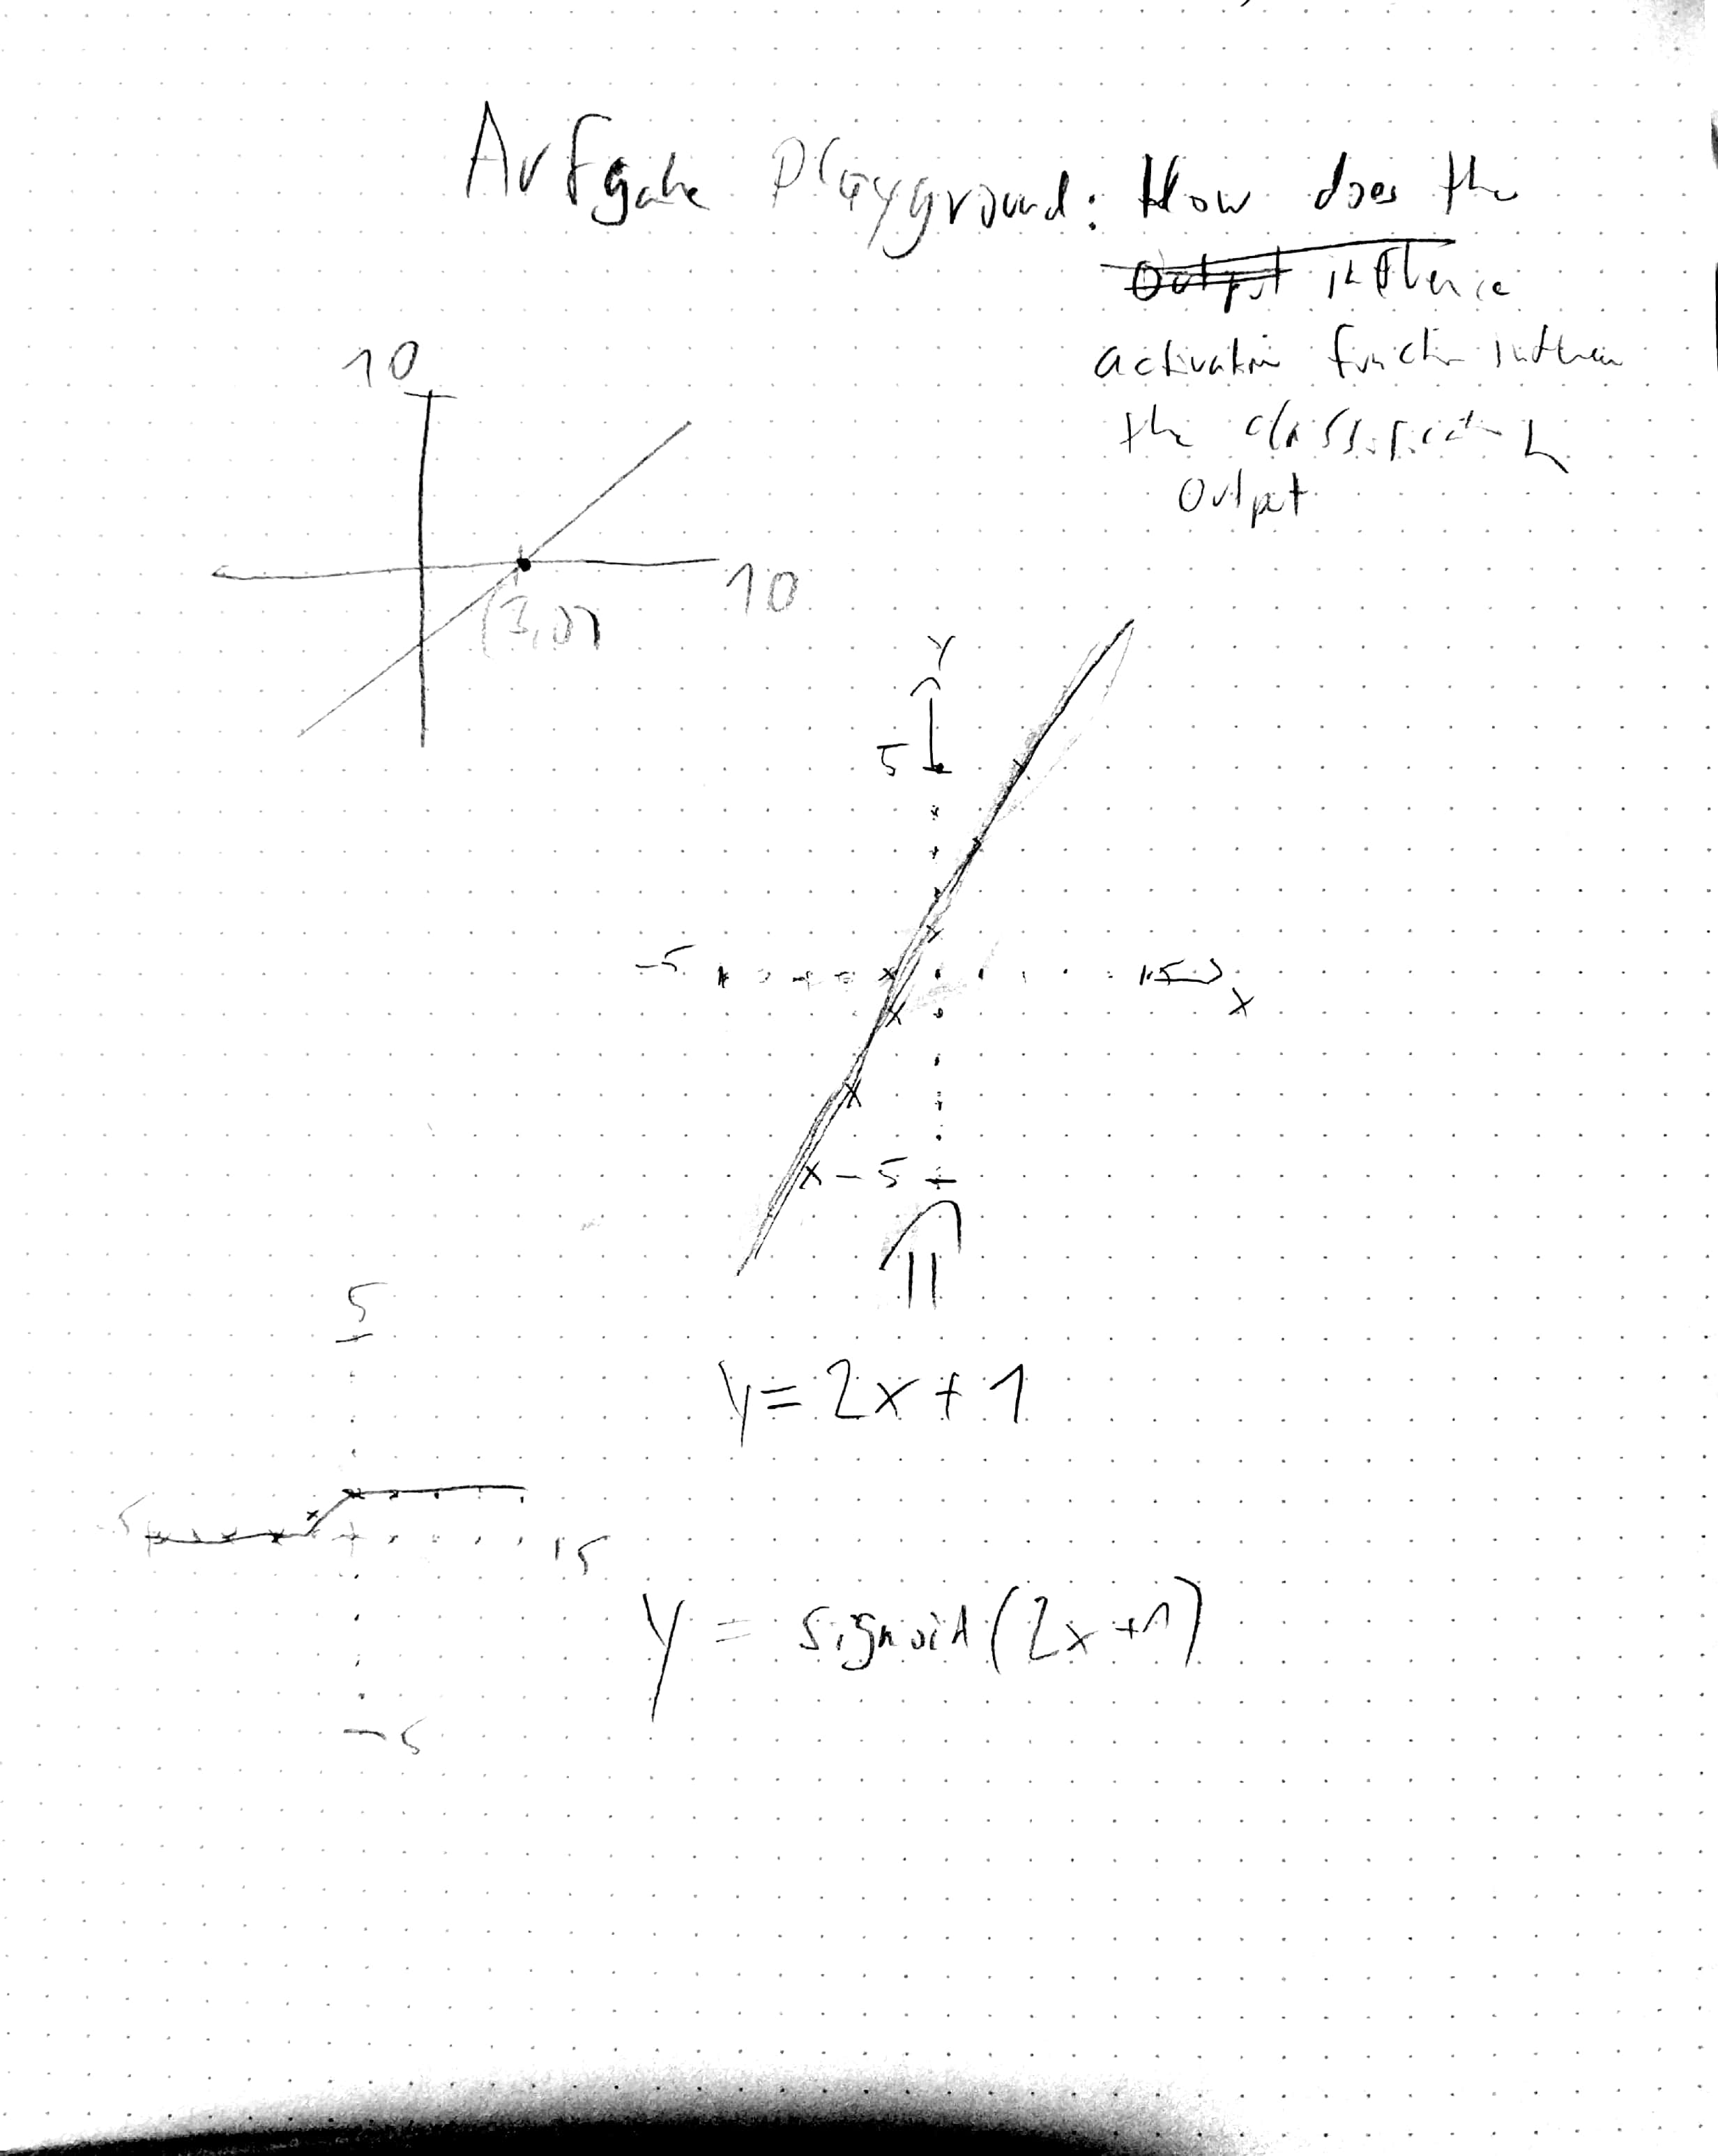 Aufgabe Playground: How does the
Output influence
activation function influence
the classification
Output
10
10
(3,0)
Y
5
-5
5
X
-5
y=2x+1
5
-5
5
-5
y = sigmoid(2x+1)